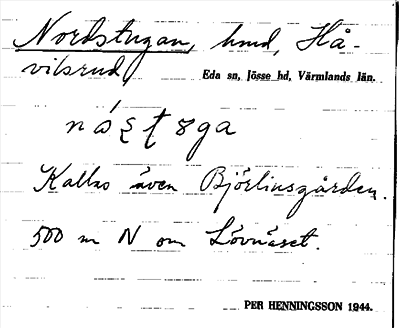 Nordstugan, hmd, Hå-
vilsrud, Eda sn, Jösse hd, Värmlands län.
Kallas även Björlinsgården.
500 m N om Lövnäset.
PER HENNINGSSON 1944.